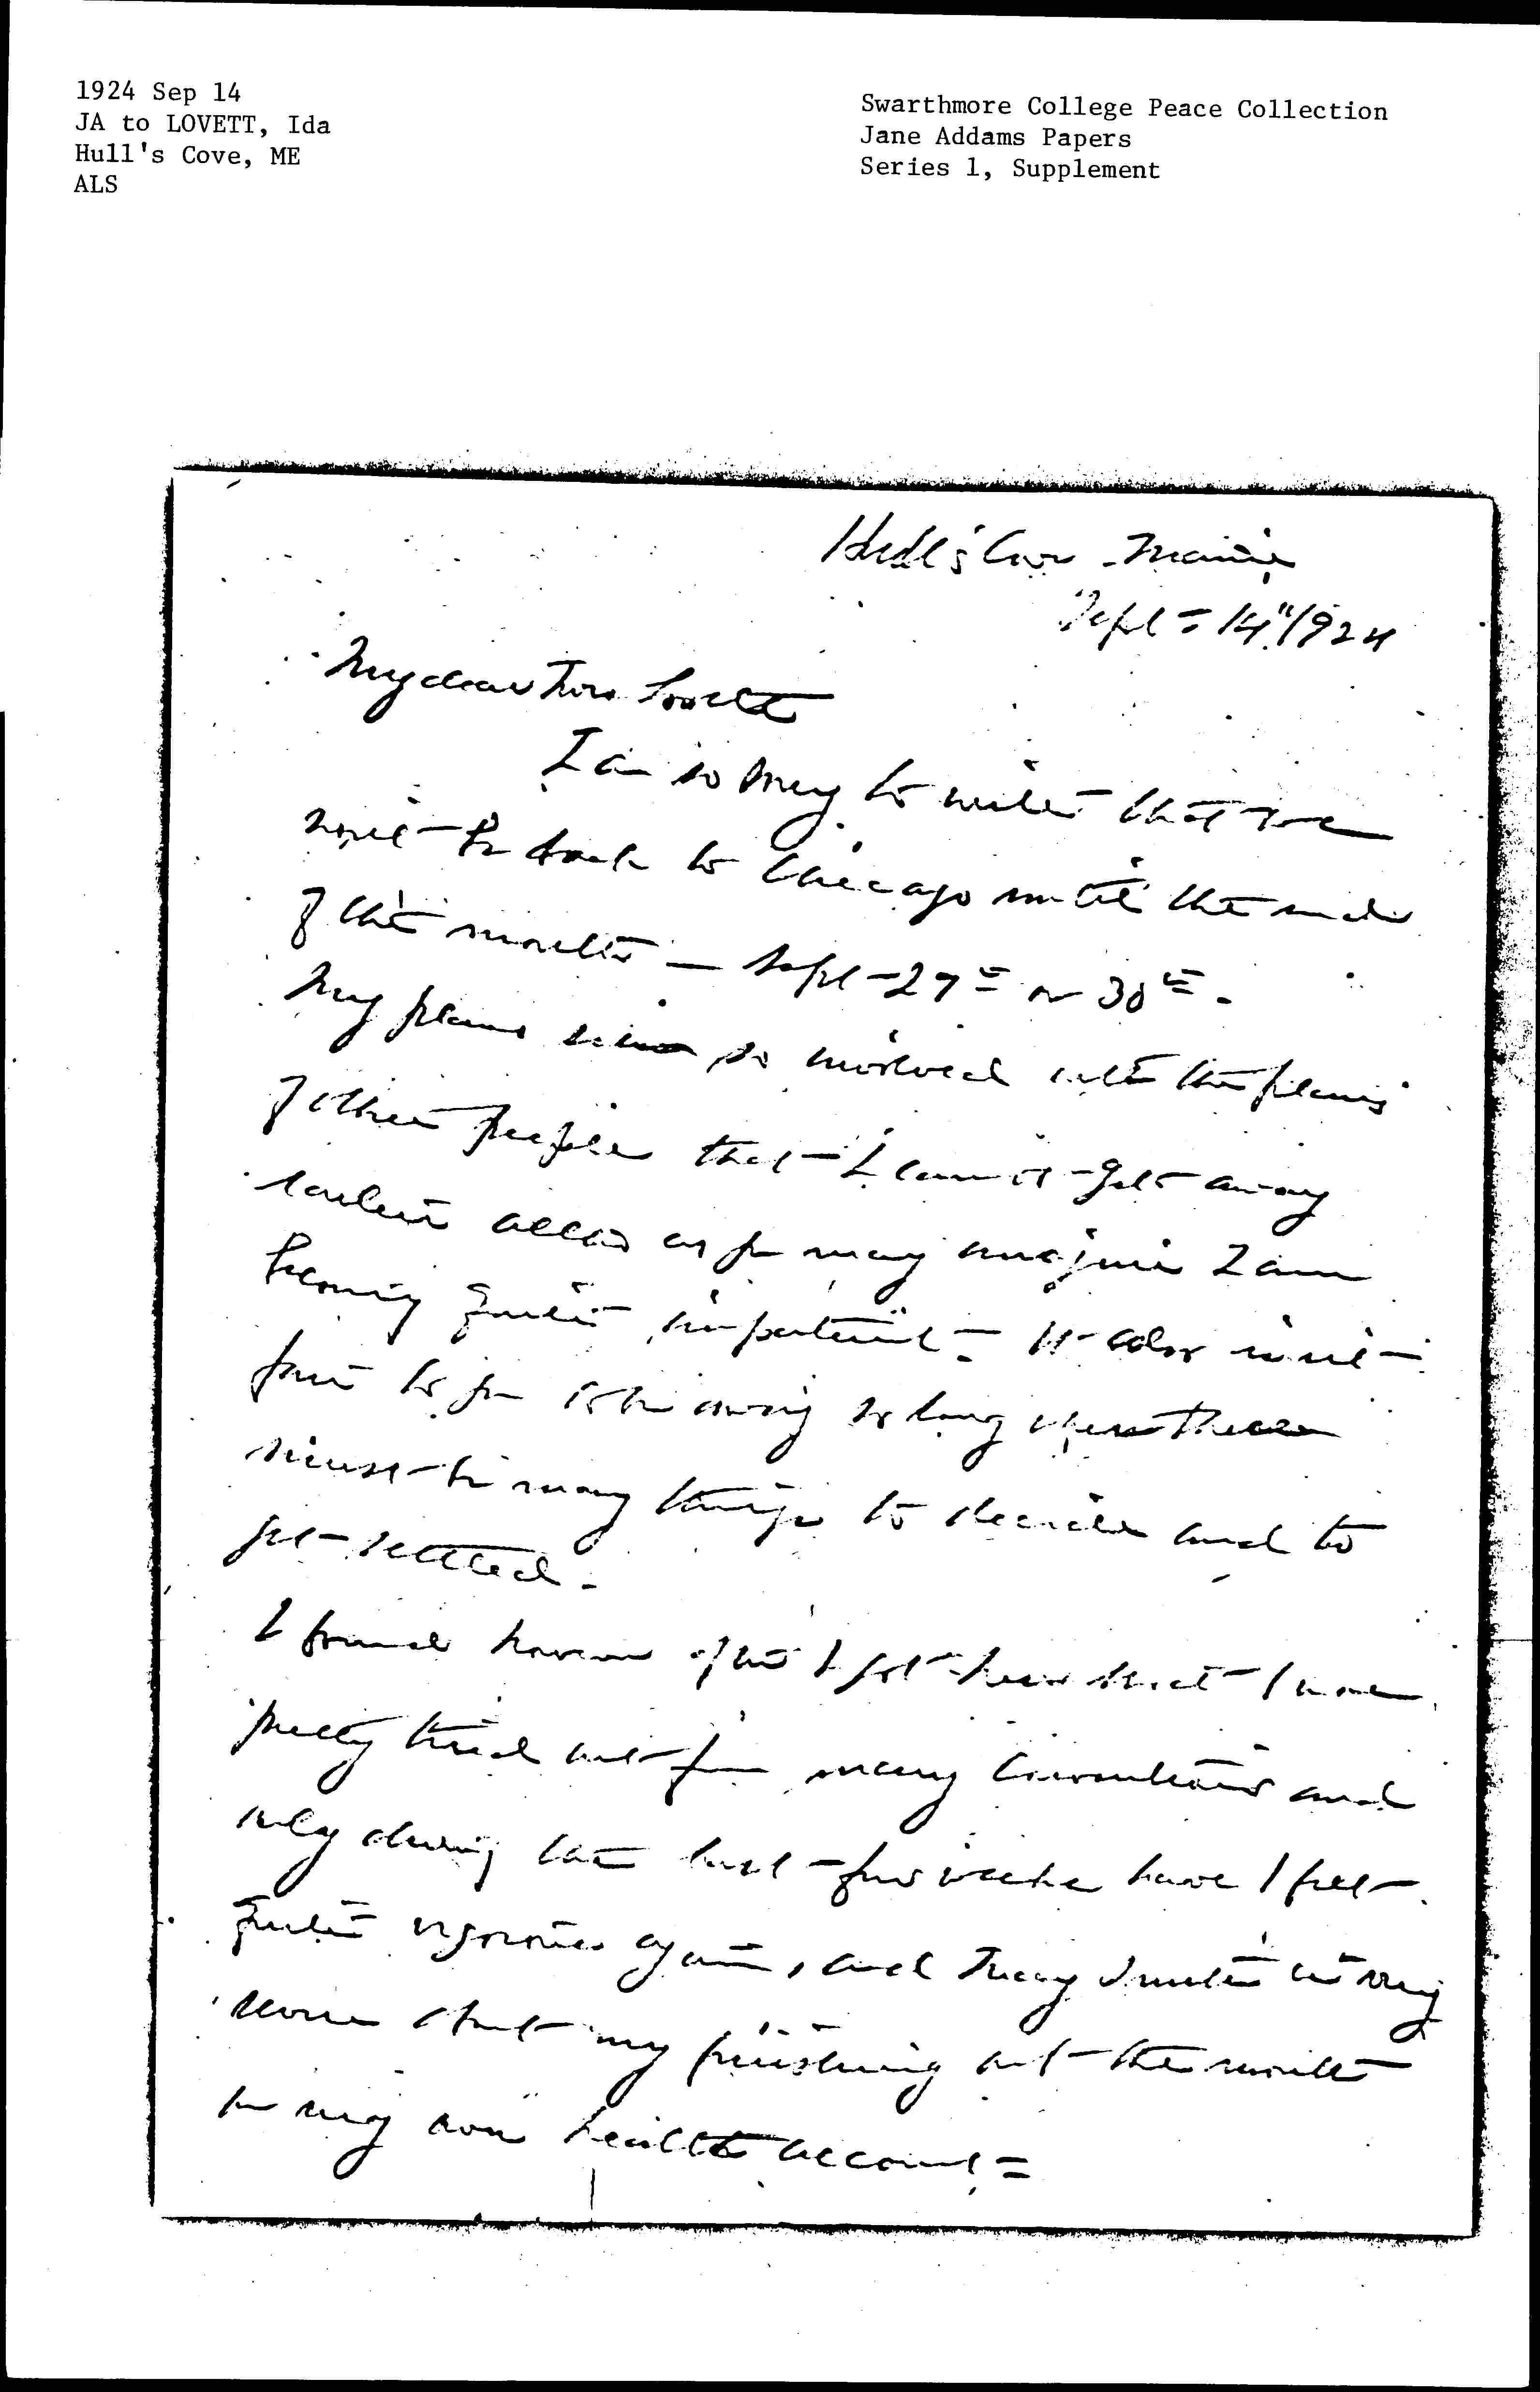 1924 Sep 14
JA to LOVETT, Ida
Hull's Cove, ME
ALS
Swarthmore College Peace Collection
Jane Addams Papers
Series 1, Supplement
Hull's Cove - Maine
Sept = 14" 1924
My dear Mrs Lovett
I am so sorry to write that I
won't be back to Chicago until the end
of the month — Sept - 27th or 30th -
My plans are so involved with the plans
of other people that - I cannot - get away
earlier altho as you may imagine I am
becoming quite impatient - It also isn't
fair to you to be away so long when there
must be many things to decide and to
get - settled -
I found however after I got here that - I was
pretty tired out from many conventions and
only during the last - few weeks have I felt -
quite vigorous again, and Mary Smith is very
about my finishing out - the month
on my own health account =